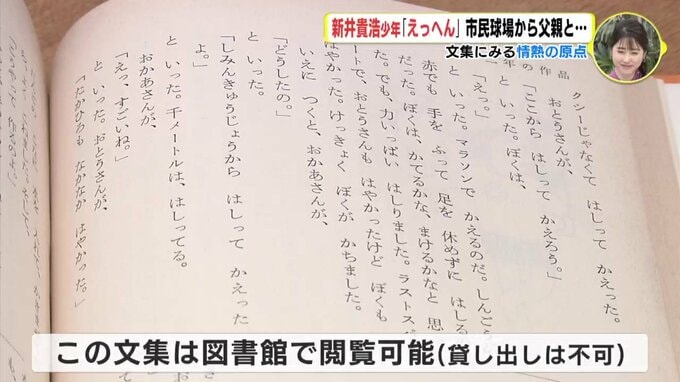 新井貴浩少年「えっへん」 市民球場から父親と…
文集にみる情熱の原点
作品
クシーじゃなくて はしって かえった。
おとうさんが、
「ここから はしって かえろう。」
と いった。ぼくは、
「えっ。」
と いった。マラソンで かえるのだ。しんごう
赤でも 手を ふって 足を 休めずに はしる
だった。ぼくは、かてるかな、まけるかなと 思
た。でも、力いっぱい はしりました。ラストス
ートで、おとうさんも はやかったけど ぼくも
はやかった。けっきょく ぼくが かちました。
いえに つくと、おかあさんが、
「どうしたの。」
と いった。
「しみんきゅうじょうから はしって かえった
よ。」
と いった。千メートルは、はしってる。
おかあさんが、
「えっ、すごいね。」
と いった。おとうさんが、
「たかひろも なかなか はやかった。」
この文集は図書館で閲覧可能(貸し出しは不可)